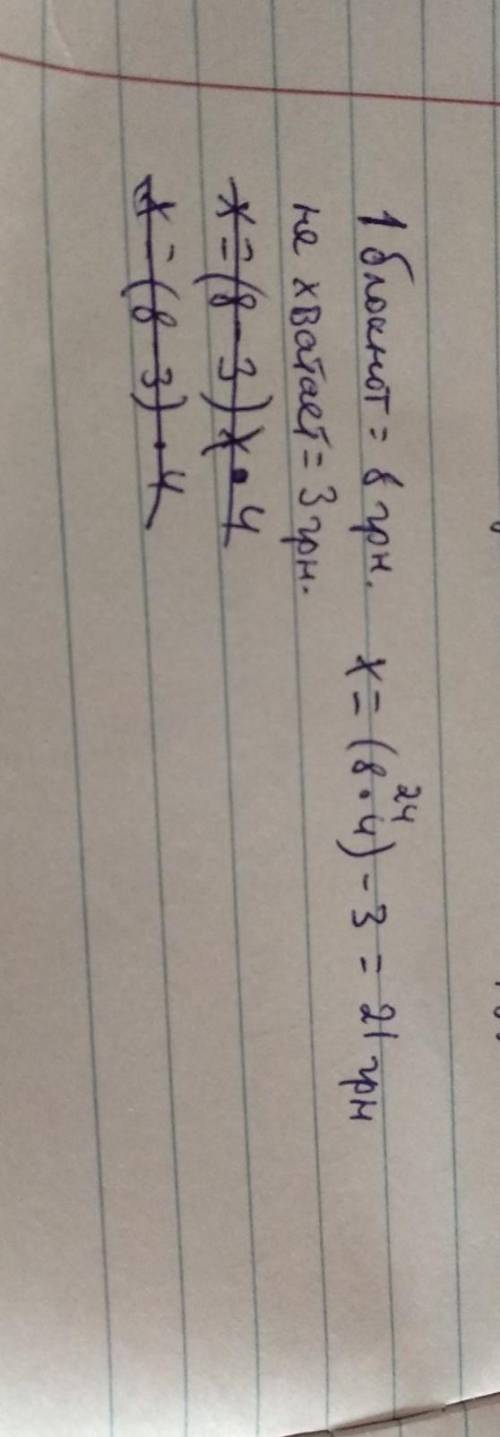 1 блокнот = 8 грн. x = (8 • 4) - 3 = 21 грн
24
не хватает = 3 грн.
x = (8 - 3) x • 4
x = (8 - 3) • 4